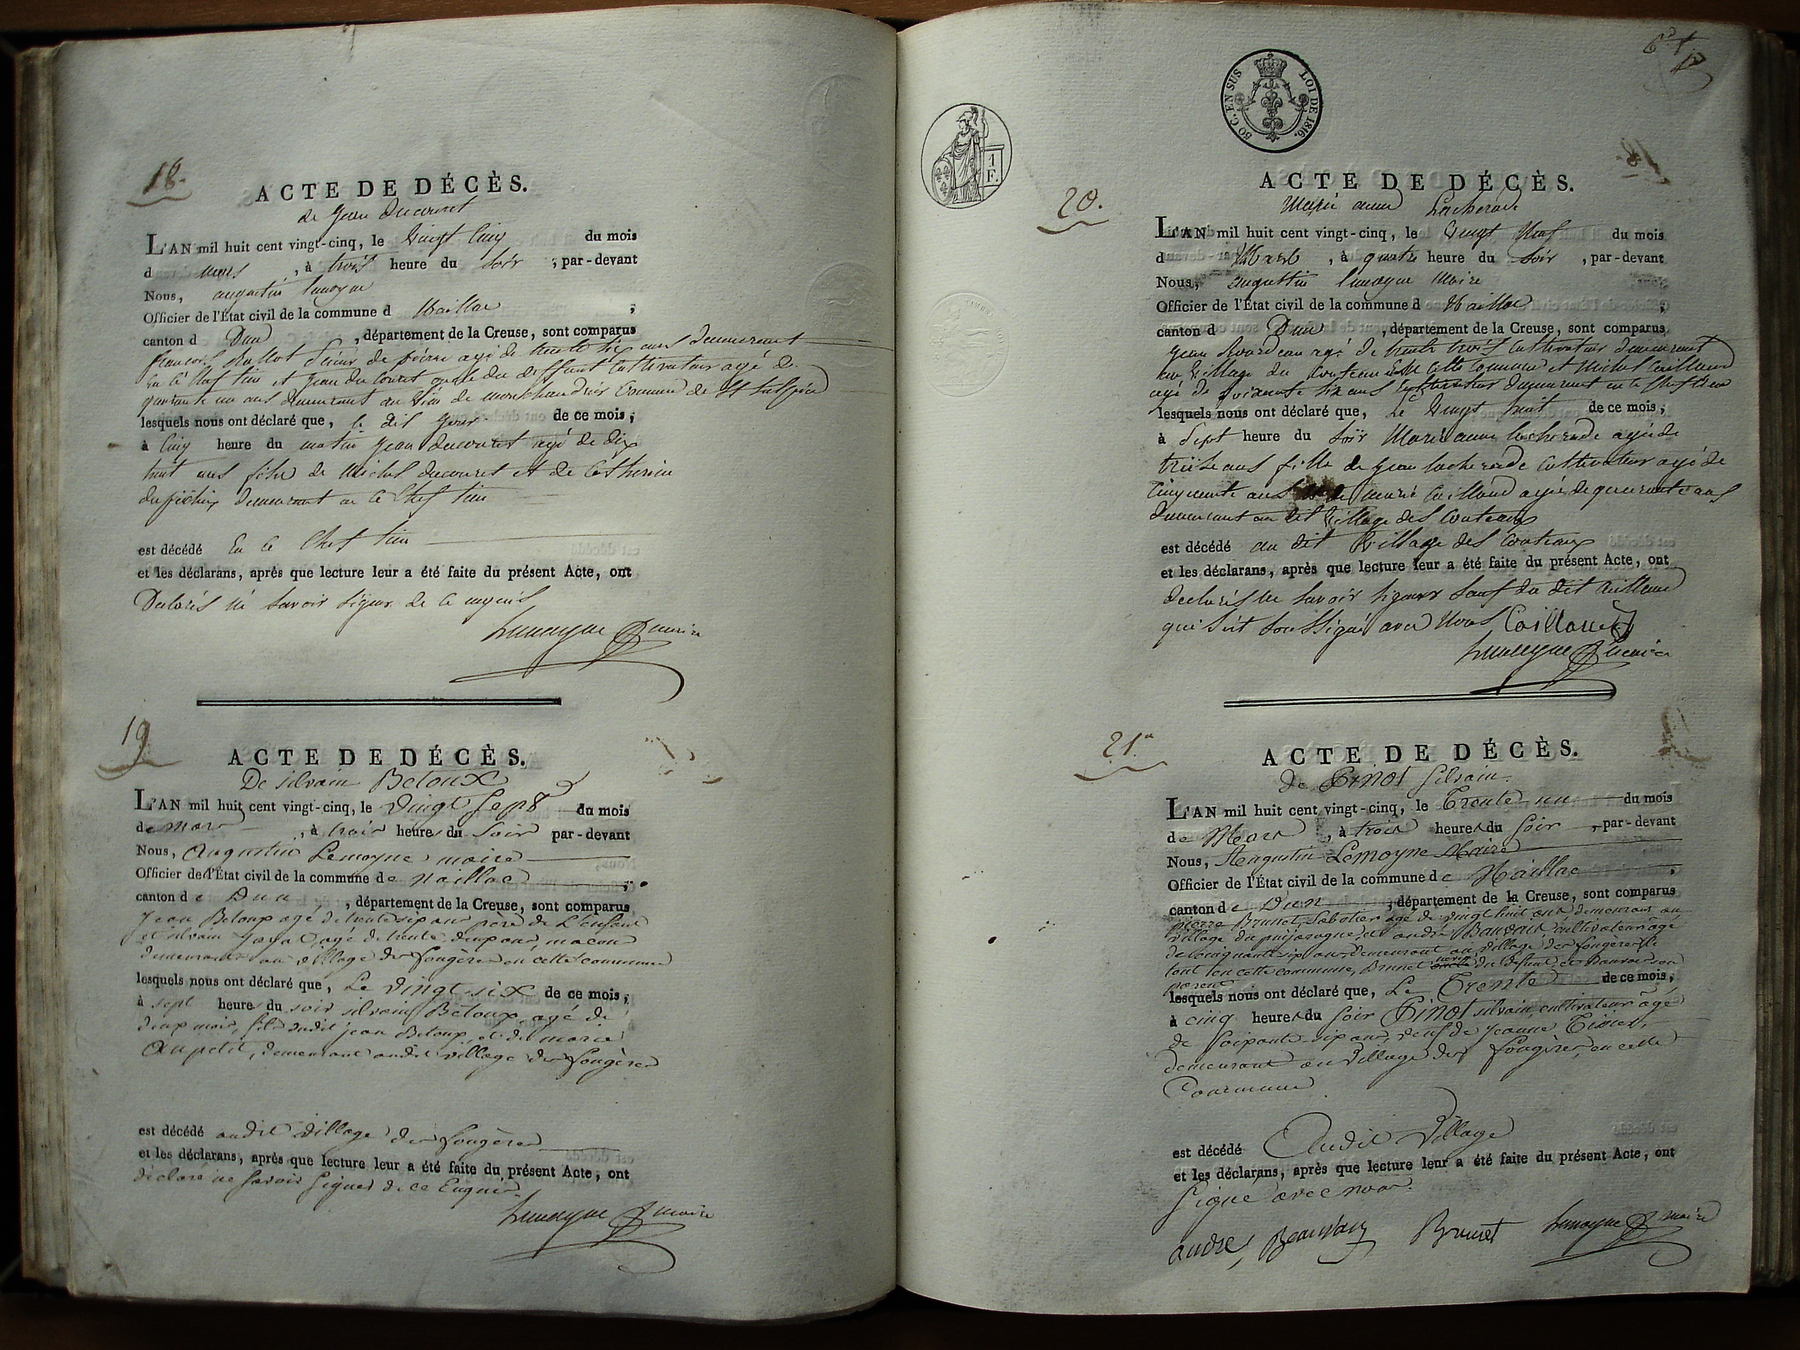 18.
ACTE DE DÉCÈS.
de Jean Ducouret
L'AN mil huit cent vingt-cinq, le Vingt Cinq du mois
d mars, à trois heure du soir, par-devant
Nous, augustin lemoyne
Officier de l'État civil de la commune d Naillac,
canton d Dun, département de la Creuse, sont comparus
francois Ballot agé de trente six ans demeurant
en ce chef lieu et Jean du Couret oncle du deffunt Cultivateur agé de
quarante un ans demeurant au lieu de Commune de St Sulpice
lesquels nous ont déclaré que, le dit jour de ce mois,
à Cinq heure du matin Jean ducouret agé de dix
huit ans fils de Michel ducouret et de Catherine
demeurant en ce Chef lieu
est décédé En ce Chef lieu
et les déclarans, après que lecture leur a été faite du présent Acte, ont
Declarés ne savoir signer de ce enquis
Lemoyne maire
19
ACTE DE DÉCÈS.
De silvain Beloux
L'AN mil huit cent vingt-cinq, le Vingt Sept du mois
de mars, à trois heures du soir par-devant
Nous, Augustin Lemoyne maire
Officier de l'État civil de la commune de Naillac,
canton de Dun, département de la Creuse, sont comparus
Jean Beloux agé de trente six ans père de L'enfant
et silvain agé de trente deux ans, maçon
demeurans au village des fougères en cette commune
lesquels nous ont déclaré que, Le vingt six de ce mois,
à sept heure du soir silvain Beloux, agé de
deux mois, fils dudit jean Beloux, et de marie
Aupetit, demeurant audit village des fougères
est décédé audit village des fougères
et les déclarans, après que lecture leur a été faite du présent Acte, ont
déclaré ne savoir signer de ce Enquis.
Lemoyne maire
1 F.
50 C. EN SUS LOI DE 1816.
20.
ACTE DE DÉCÈS.
Marie anne Lacherade
L'AN mil huit cent vingt-cinq, le Vingt Neuf du mois
d Mars, à quatre heure du soir, par-devant
Nous, augustin lemoyne Maire
Officier de l'État civil de la commune d Naillac
canton d Dun, département de la Creuse, sont comparus
Jean agé de trente trois Cultivateur demeurant
au village des Couteaux cette Commune et Michel Caillaud
agé de soixante six ans Cultivateur demeurant en ce chef lieu
lesquels nous ont déclaré que, Le Vingt huit de ce mois,
à Sept heure du soir Marie anne lacherade agée de
treise ans fille de Jean lacherade Cultivateur agé de
Cinquante ans de marie Caillaud agée de quarante ans
demeurant au dit village des Couteaux
est décédé au dit Village des Couteaux
et les déclarans, après que lecture leur a été faite du présent Acte, ont
declarés ne savoir signer sauf du dit Caillaud
qui soussigné avec Nous Caillaud
Lemoyne maire
21.
ACTE DE DÉCÈS.
de PINOT Silvain.
L'AN mil huit cent vingt-cinq, le Trente un du mois
de Mars, à trois heures du soir, par-devant
Nous, Augustin Lemoyne Maire
Officier de l'État civil de la commune de Naillac,
canton de Dun, département de la Creuse, sont comparus
pierre Brunet, Sabotier agé de vingt huit ans, demeurant au
village du et andré Beauvais cultivateur agé
de cinquante six ans, demeurant au village des fougères le
tout en cette commune, Brunet neveu du défunt et Beauvais son
parent
lesquels nous ont déclaré que, Le Trente de ce mois,
à cinq heures du soir PINOT silvain, cultivateur agé
de soixante-six ans, veuf de Jeanne
demeurant au village des fougères, en cette
Commune
est décédé Audit Village
et les déclarans, après que lecture leur a été faite du présent Acte, ont
signé avec nous.
andre, Beauvais Brunet Lemoyne maire